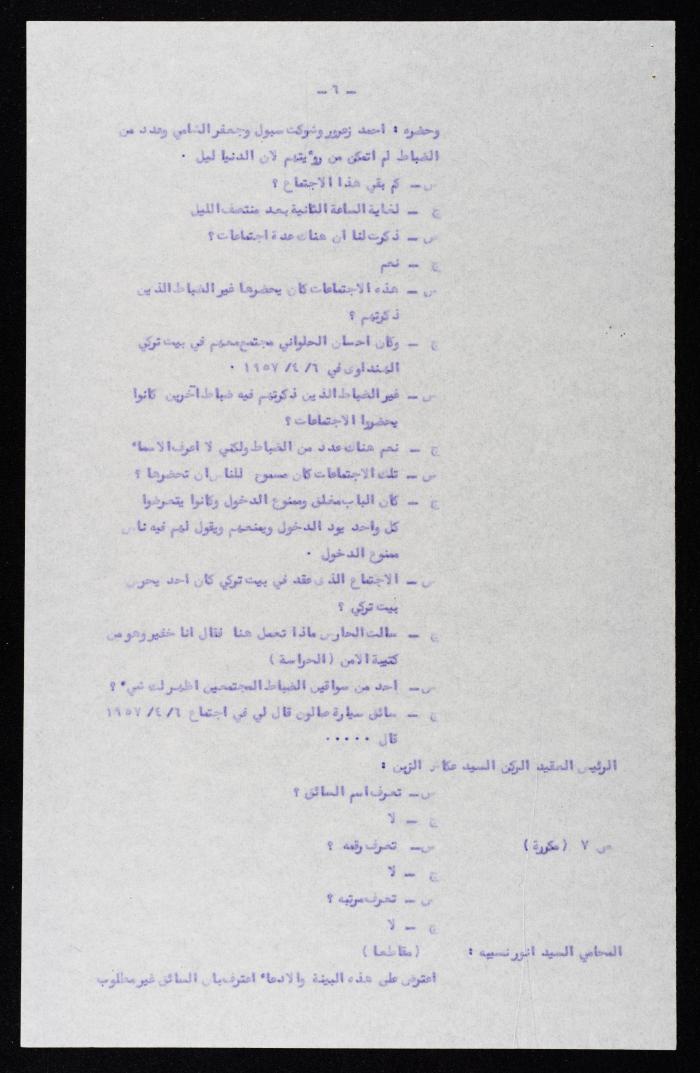 ـ ٦ ـ
وحضره : احمد زعرور وشوكت سبول وجعفر الشامي وعدد من
الضباط لم اتمكن من روءيتهم لان الدنيا ليل .
س ـ كم بقي هذا الاجتماع ؟
ج ـ لغاية الساعة الثانية بعد منتصف الليل
س ـ ذكرت لنا ان هناك عدة اجتماعات ؟
ج ـ نعم
س ـ هذه الاجتماعات كان يحضرها غير الضباط الذين
ذكرتهم ؟
ج ـ وكان احسان الحلواني مجتمع معهم في بيت تركي
الهنداوى في ٦/ ٤/ ١٩٥٧ .
س ـ غير الضباط الذين ذكرتهم فيه ضباط آخرين كانوا
يحضروا الاجتماعات ؟
ج ـ نعم هناك عدد من الضباط ولكني لا اعرف الاسماء
س ـ تلك الاجتماعات كان مسموح للناس ان تحضرها ؟
ج ـ كان الباب مغلق وممنوع الدخول وكانوا يتعرضوا
كل واحد يود الدخول ويمنعهم ويقول لهم فيه ناس
ممنوع الدخول .
س ـ الاجتماع الذى عقد في بيت تركي كان احد يحرس
بيت تركي ؟
ج ـ سالت الحارس ماذا تعمل هنا فقال انا خفير وهو من
كتيبة الامن ( الحراسة )
س ـ احد من سواقين الضباط المجتمعين اظهر لك شيء ؟
ج ـ سائق سيارة صالون قال لي في اجتماع ٦/ ٤/ ١٩٥٧
قال .....
الرئيس العقيد الركن السيد عكاش الزبن :
س ـ تعرف اسم السائق ؟
ج ـ لا
ص ٧ ( مكررة ) س ـ تعرف رقمه ؟
ج ـ لا
س ـ تعرف مرتبه ؟
ج ـ لا
المحامي السيد انور نسيبه : ( مقاطعا )
اعترض على هذه البينة والادعاء اعترف بان السائق غير مطلوب